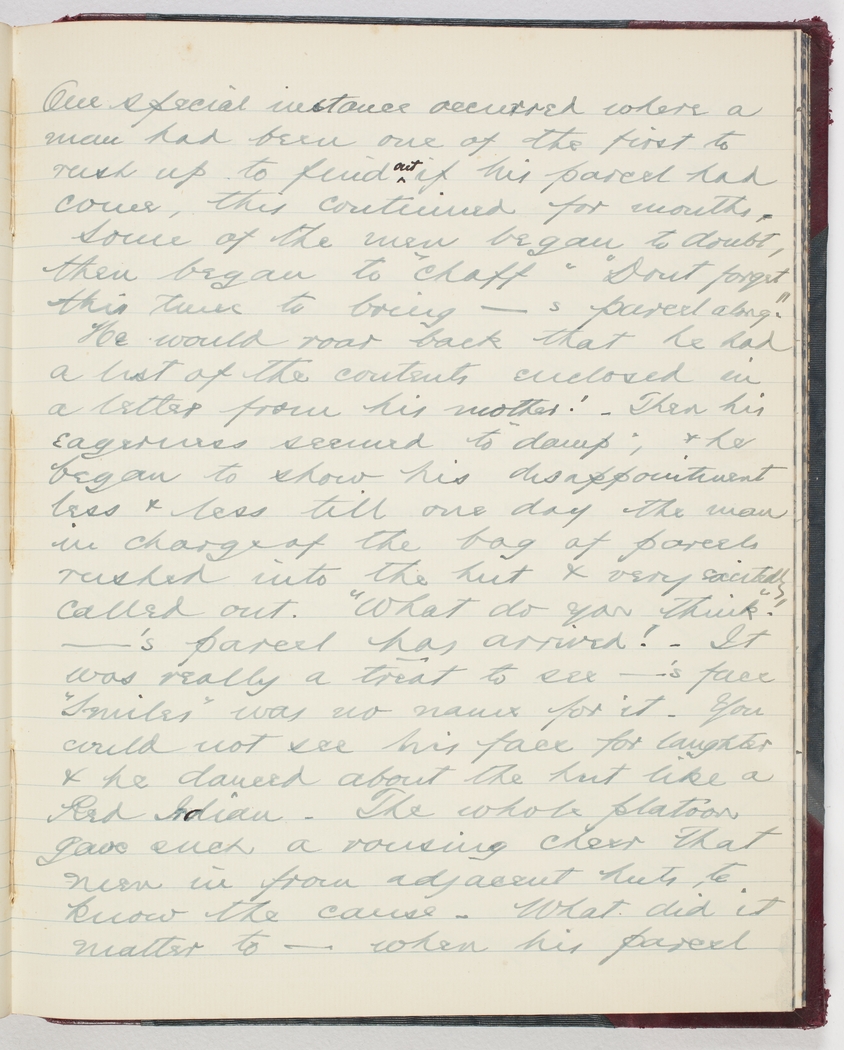 One special instance occurred where a
man had been one of the first to
rush up to find out if his parcel had
come, this continued for months.
Some of the men began to doubt,
then began to "chaff" "Dont forget
this time to bring — s parcel along."
He would roar back that he had
a list of the contents enclosed in
a letter from his mother! - Then his
eagerness seemed to "damp", & he
began to show his disappointment
less & less till one day the man
in charge of the bag of parcels
rushed into the hut & very excitedly
called out. "What do you think?"
—'s parcel has arrived! - It
was really a treat to see —'s face
"Smiles" was no name for it - You
could not see his face for laughter
& he danced about the hut like a
Red Indian - The whole platoon
gave such a rousing cheer that
men in from adjacent huts to
know the cause - What did it
matter to — when his parcel